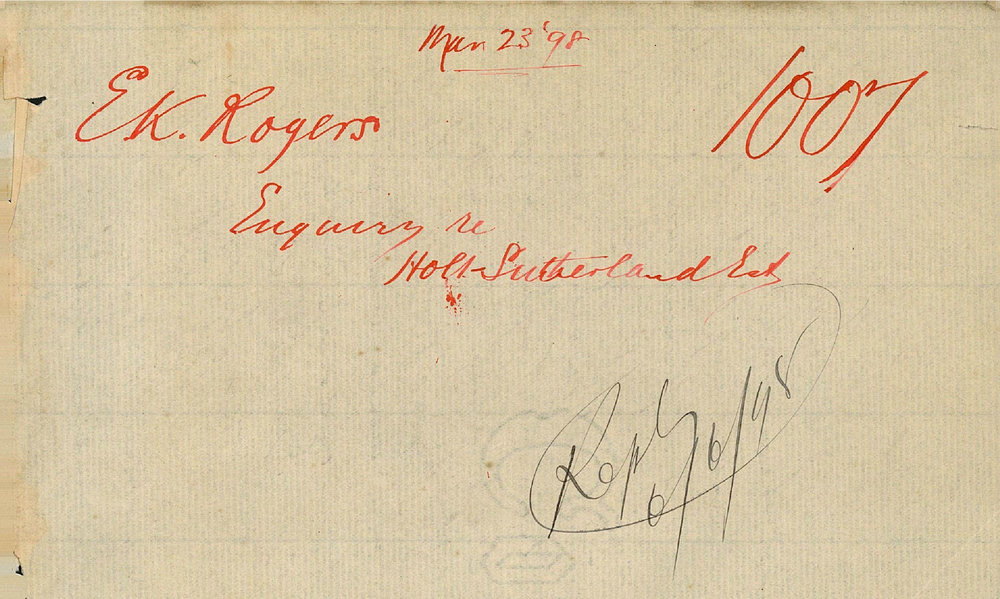 Mar 23 '98
EK. Rogers
1007
Enquiry re
Holt-Sutherland Est
Repl 6/6/98